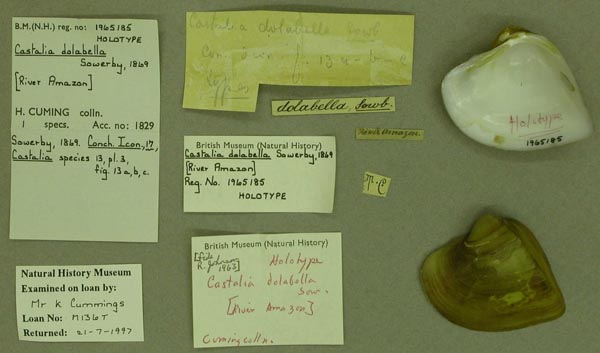 B.M.(N.H.) reg. no: 1965185
HOLOTYPE
Castalia dolabella
Sowerby, 1869
[River Amazon]
H. CUMING colln.
1 specs. Acc. no: 1829
Sowerby, 1869. Conch. Icon., 17,
Castalia species 13, pl. 3,
fig. 13 a, b, c.
Natural History Museum
Examined on loan by:
Mr K Cummings
Loan No: M136T
Returned: 21-7-1997
Castalia dolabella Sowb
Con. Icon f. 13 a-b-c
types
dolabella, Sowb.
River Amazon.
British Museum (Natural History)
Castalia dolabella Sowerby, 1869
[River Amazon]
Reg. No. 1965185
HOLOTYPE
M.C.
British Museum (Natural History)
[fide
R. Johnson
1963]
Holotype
Castalia dolabella
Sow.
[River Amazon]
Cuming colln.
Holotype
1965185